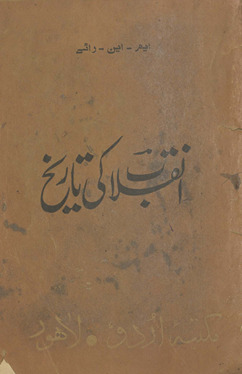 ایم - این - رائے
انقلاب کی تاریخ
مکتبہ اردو • لاہور